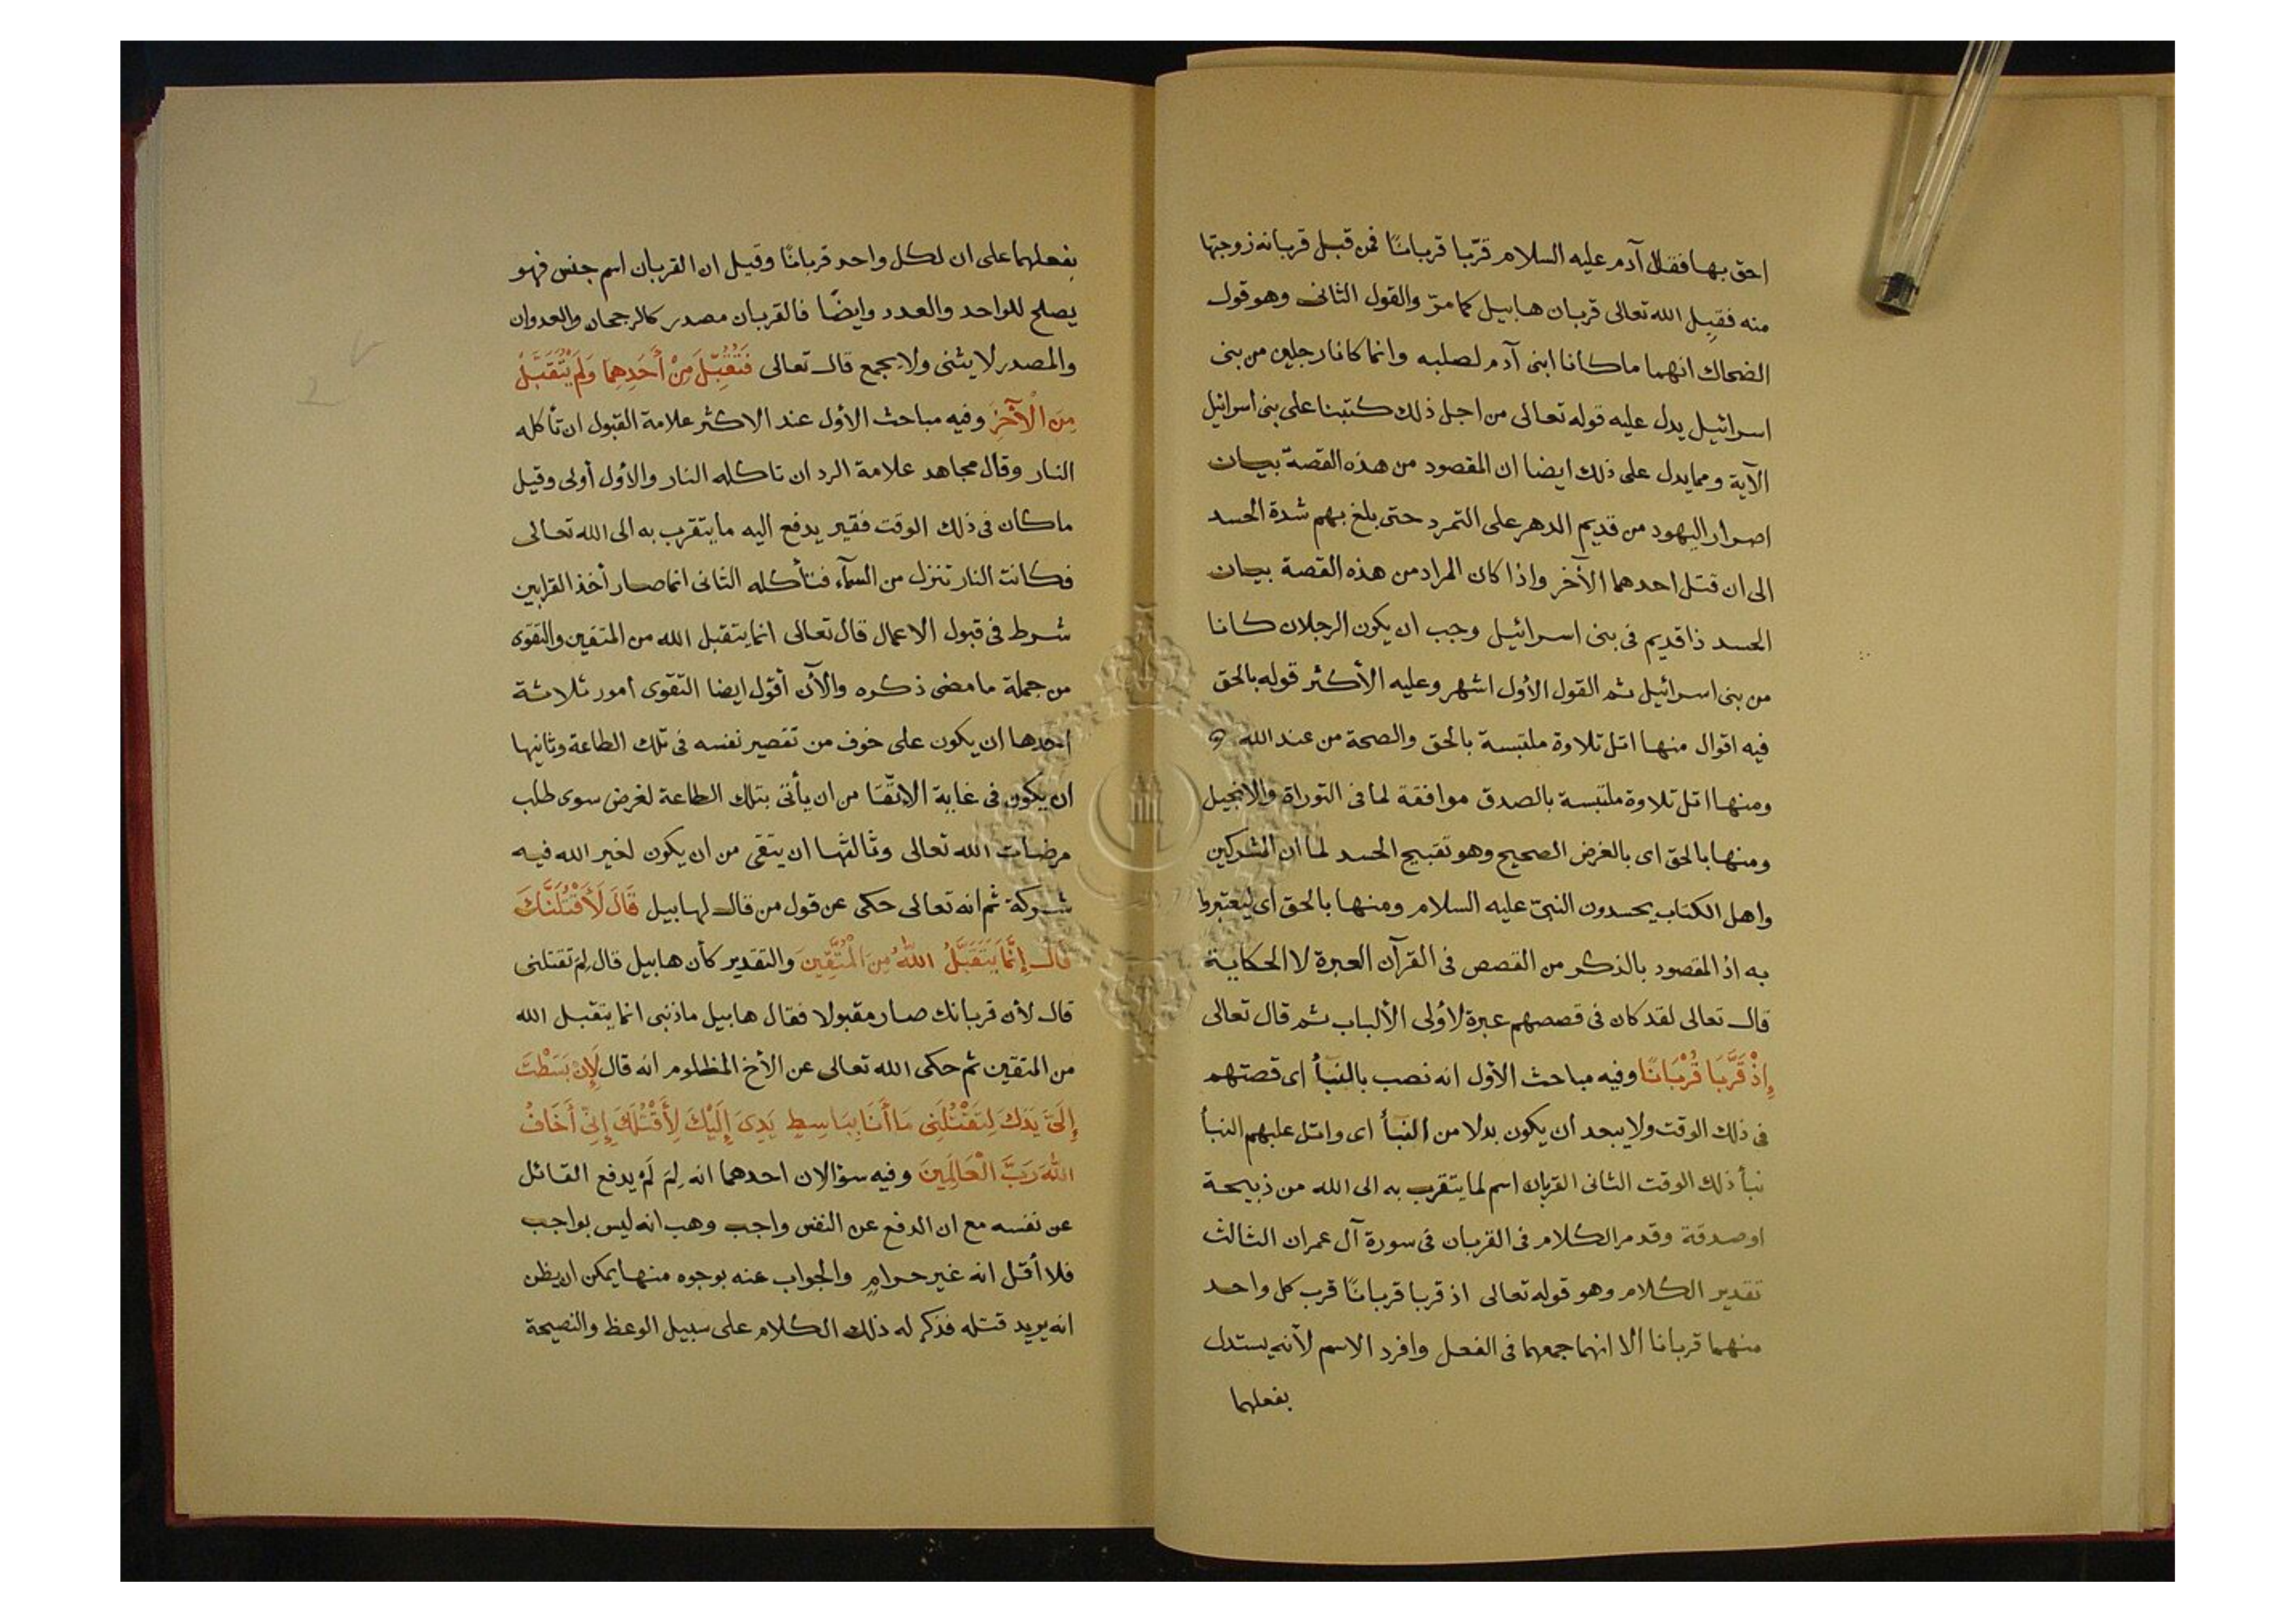 احق بها فقال آدم عليه السلام قرّبا قربانًا فمن قبل قربانه زوجتها
منه فقبِل الله تعالى قربان هابيل كما مرّ والقول الثانى وهو قول
الضحاك انهما ما كانا ابنى آدم لصلبه وانما كانا رجلين من بنى
اسرائيل يدل عليه قوله تعالى من اجل ذلك كتبنا على بنى اسرائيل
الآية ومما يدل على ذلك ايضا ان المقصود من هذه القصة بيان
اصرار اليهود من قديم الدهر على التمرد حتى بلغ بهم شدة الحسد
الى ان قتل احدهما الآخر واذا كان المراد من هذه القصة بيان
الحسد ذا قديم فى بنى اسرائيل وجب ان يكون الرجلان كانا
من بنى اسرائيل ثم القول الأول اشهر وعليه الأكثر قوله بالحق
فيه اقوال منها اتل تلاوة ملتبسة بالحق والصحة من عند الله
ومنها اتل تلاوة ملتبسة بالصدق موافقة لما فى التوراة والانجيل
ومنها بالحق اى بالغرض الصحيح وهو تقبيح الحسد لما ان المشركين
واهل الكتاب يحسدون النبىّ عليه السلام ومنها بالحق اى ليعتبروا
به اذ المقصود بالذكر من القصص فى القرآن العبرة لا الحكاية
قال تعالى لقد كان فى قصصهم عبرة لأولى الألباب ثم قال تعالى
إِذْ قَرَّبَا قُرْبَانًا وفيه مباحث الأول انه نصب بالنبأ اى قصتهم
فى ذلك الوقت ولا يبعد ان يكون بدلا من النبأ اى واتل عليهم النبأ
نبأ ذلك الوقت الثانى القربان اسم لما يتقرب به الى الله من ذبيحة
او صدقة وقد مر الكلام فى القربان فى سورة آل عمران الثالث
تقدير الكلام وهو قوله تعالى اذ قربا قربانًا قرب كل واحد
منهما قربانا الا انهما جمعهما فى الفعل وافرد الاسم لأنه يستدل
بفعلهما
بفعلهما على ان لكل واحد قربانًا وقيل ان القربان اسم جنس فهو
يصلح للواحد والعدد وايضًا فالقربان مصدر كالرجحان والعدوان
والمصدر لا يثنى ولا يجمع قال تعالى فَتُقُبِّلَ مِنْ أَحَدِهِمَا وَلَمْ يُتَقَبَّلْ
مِنَ الْآخَرِ وفيه مباحث الأول عند الاكثر علامة القبول ان تأكله
النار وقال مجاهد علامة الرد ان تاكله النار والأول أولى وقيل
ما كان فى ذلك الوقت فقير يدفع اليه ما يتقرب به الى الله تعالى
فكانت النار تنزل من السمآء فتأكله الثانى انما صار أخذ القرابين
شرط فى قبول الاعمال قال تعالى انما يتقبل الله من المتقين والتقوى
من جملة ما مضى ذكره والآن أقول ايضا التقوى امور ثلاثة
احدها ان يكون على خوف من تقصير نفسه فى تلك الطاعة وثانيها
ان يكون فى غاية الاتّقا من ان يأتى بتلك الطاعة لغرض سوى طلب
مرضات الله تعالى وثالثها ان يتقى من ان يكون لغير الله فيه
شركة ثم انه تعالى حكى عن قول من قال لهابيل قَالَ لَأَقْتُلَنَّكَ
قال إِنَّمَا يَتَقَبَّلُ اللهُ مِنَ الْمُتَّقِينَ والتقدير كأن هابيل قال لِمَ تقتلنى
قال لأن قربانك صار مقبولا فقال هابيل ما ذنبى انما يتقبل الله
من المتقين ثم حكى الله تعالى عن الأخ المظلوم انه قال لَإِنْ بَسَطْتَ
إِلَىَّ يَدَكَ لِتَقْتُلَنِى مَا أَنَا بِبَاسِطٍ يَدِىَ إِلَيْكَ لِأَقْتُلَكَ إِنِّى أَخَافُ
اللهَ رَبَّ الْعَالَمِينَ وفيه سؤالان احدهما انه لِمَ لَمْ يدفع القاتل
عن نفسه مع ان الدفع عن النفس واجب وهب انه ليس بواجب
فلا أقل انه غير حرامٍ والجواب عنه بوجوه منها يمكن ان يظن
انه يريد قتله فذكر له ذلك الكلام على سبيل الوعظ والنصيحة